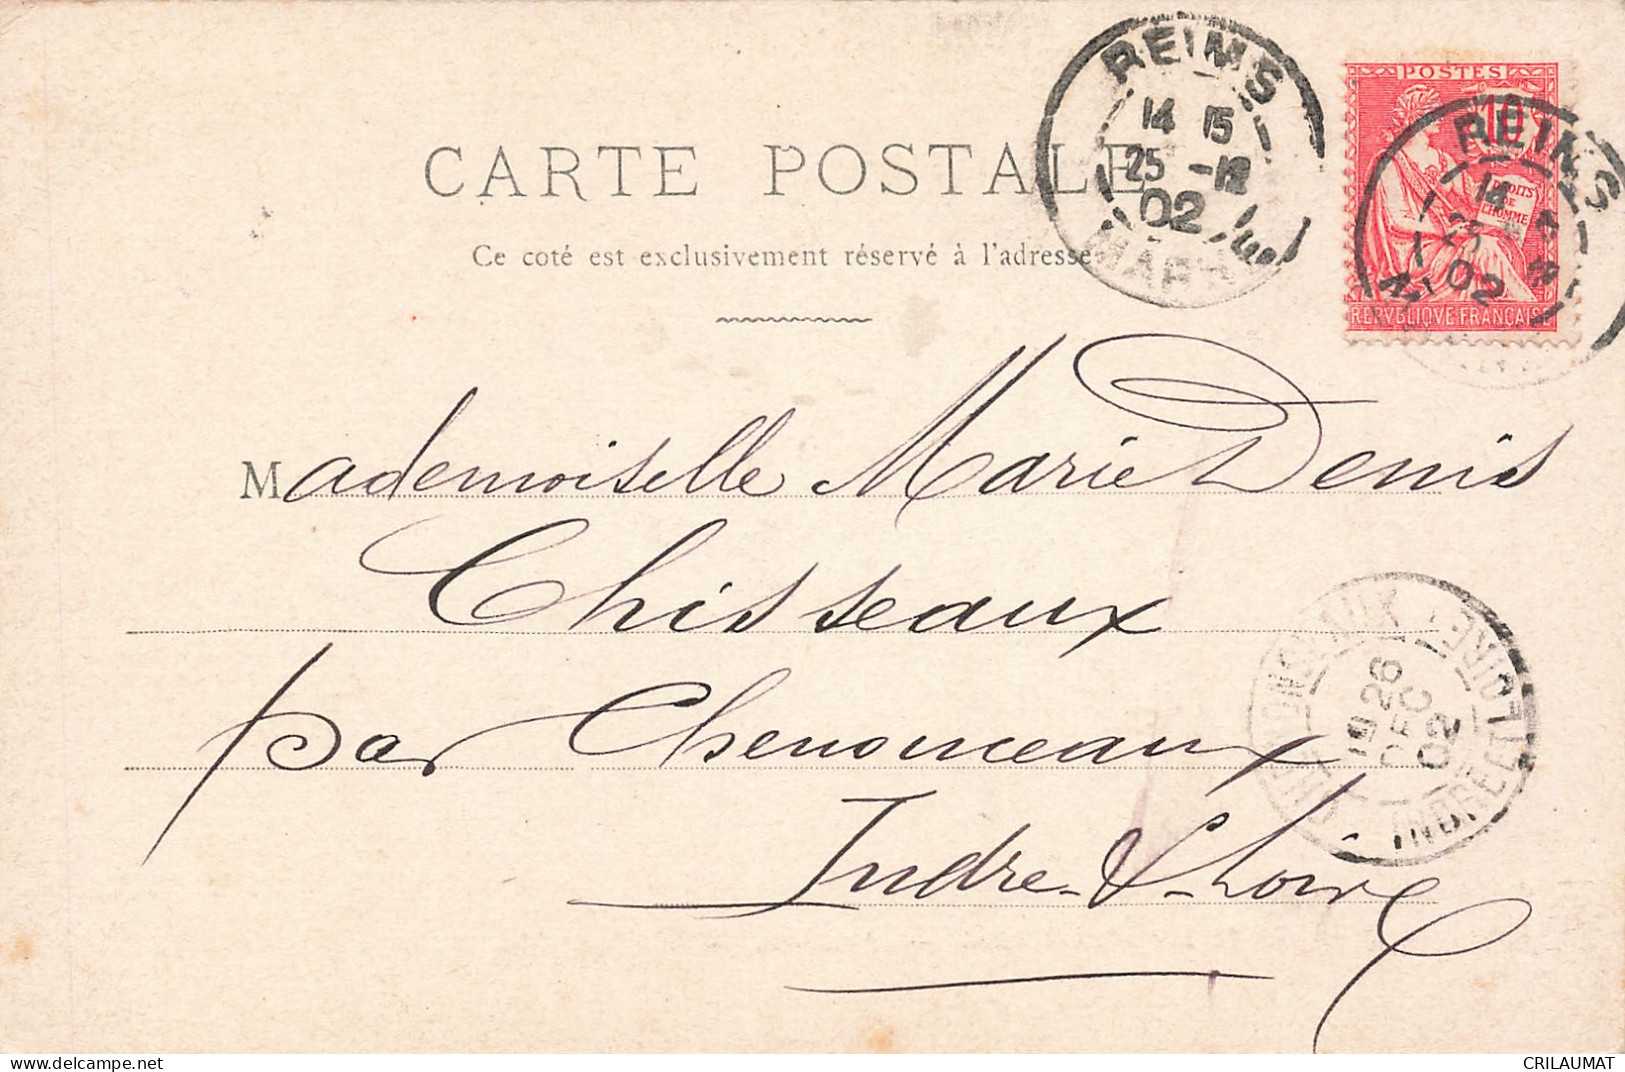 REIMS
14 15
25 -12
02
MARNE
POSTES
10
DROITS
DE
L'HOMME
REPVBLIQVE FRANCAISE
REIMS
14
25
02
CARTE POSTALE
Ce coté est exclusivement réservé à l'adresse
Mademoiselle Marie Denis
Chisseaux
par Chenonceaux
Indre-&-Loire
CHENONCEAUX
26
DEC
02
INDRE ET LOIRE
delcampe.net
CRILAUMAT